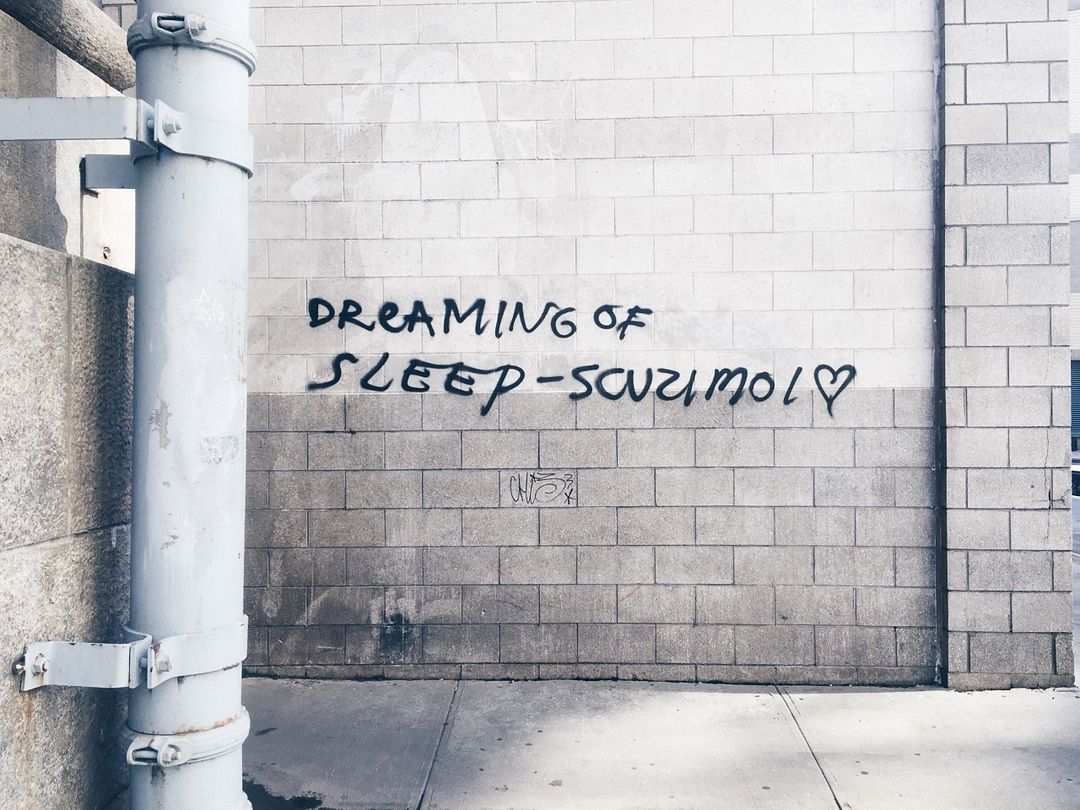 DReAMING OF
SLEEP-SCUZIMOI ♡